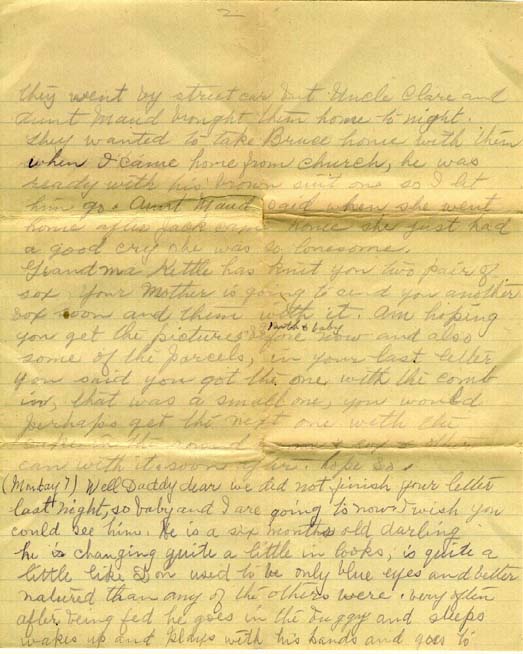 2
they went by streetcar but Uncle Clare and
Aunt Maud brought them home to night.
They wanted to take Bruce home with them
when I came home from church, he was
ready with his brown suit on so I let
him go. Aunt Maud said when she went
home after Jack came home she just had
a good cry she was so lonesome.
Grandma Kettle has knit you two pair of
sox. Your Mother is going to send you another
box soon and them with it. Am hoping
you get the pictures before now and also
some of the parcels, in your last letter
you said you got the one with the comb
in, that was a small one, you would
perhaps get the next one with the
can with it soon after. hope so.
(Monday 7) Well Daddy dear we did not finish your letter
last night, so baby and I are going to now. I wish you
could see him. He is a six months old darling
he is changing quite a little in looks, is quite a
little like Don used to be only blue eyes and better
natured than any of the others were. Very often
after being fed he goes in the buggy and sleeps
wakes up and plays with his hands and goes to